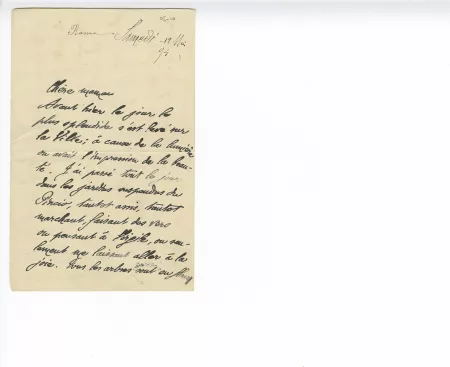 Samedi - 12 Mai
94
Chère maman
Avant hier le jour le
plus splendide s'est levé sur
la Ville; à cause de la lumière
on avait l'impression de la beau-
té. J'ai passé tout le jour
dans les jardins suspendus du
Pincio, tantôt assis, tantôt
marchant, faisant des vers
ou pensant à Virgile, ou seu-
lement me laissant aller à la
joie. Tous les arbres sont en